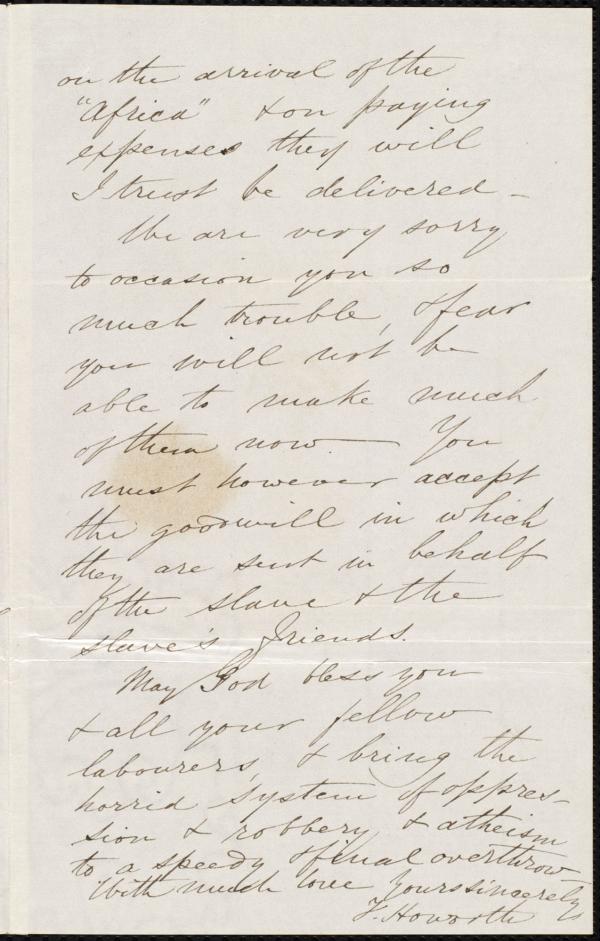 on the arrival of the
"Africa" & on paying
expenses they will
I trust be delivered -
We are very sorry
to occasion you so
much trouble, & fear
you will not be
able to make much
of them now. — You
must however accept
the goodwill in which
they are sent in behalf
of the slave & the
slave's friends.
May God bless you
& all your fellow
labourers, & bring the
horrid system of oppres-
sion & robbery & atheism
to a speedy & final overthrow
With much love Yours sincerely
F. Howorth